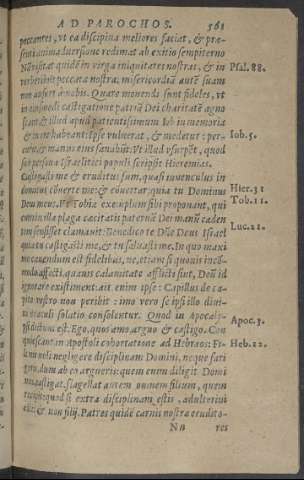 AD PAROCHOS. 561
peccantes, vt ea disciplina meliores faciat, & præ-
senti animaduersione redimat ab exitio sempiterno
Nā visitat quidē in virga iniquitates nostras, & in Psal. 88.
verberibus peccata nostra: misericordiā autē suam
non aufert à nobis. Quare monendi sunt fideles, vt
in eiusmodi castigatione patriā Dei charitatē agno
scant & illud apud patientissimum Iob in memoria
& ore habeant: Ipse vulnerat, & medetur: per- Iob. 5.
cutit, & manus eius sanabūt. Vt illud vsurpēt, quod
sub persona Israëlitici populi scripsit Hieremias.
Castigasti me & eruditus sum, quasi iuuenculus in
domitus: cōuerte me: & cōuertar: quia tu Dominus Hier. 31
Deus meus. Vt Tobiæ exemplum sibi proponant, qui Tob. 11.
cum in illa plaga cæcitatis paternā Dei manū cæden
tem sensisset clamauit: Benedico te Dñe Deus Israel
quia tu castigasti me, & tu saluasti me. In quo maxi Luc. 21.
me cauendum est fidelibus, ne, etiam si quouis incō-
modo affecti, quauis calamitate afflicti sint, Deū id
ignorare existiment: ait enim ipse: Capillus de ca-
pite vestro non peribit: imo vero se ipsi illo diui-
ni oraculi solatio consolentur. Quod in Apocaly-
psi dictum est. Ego, quos amo, arguo & castigo. Con Apoc. 3.
quiescant in Apostoli cohortatione ad Hebræos: Fi- Heb. 22.
li mi noli negligere disciplinam Domini, neque fati
geris, dum ab eo argueris: quem enim diligit Domi
nus, castigat. flagellat autem omnem filium, quem
recipit: quod si extra disciplinam estis, adulterini
& non filij. Patres quidē carnis nostræ erudito-
Nn res